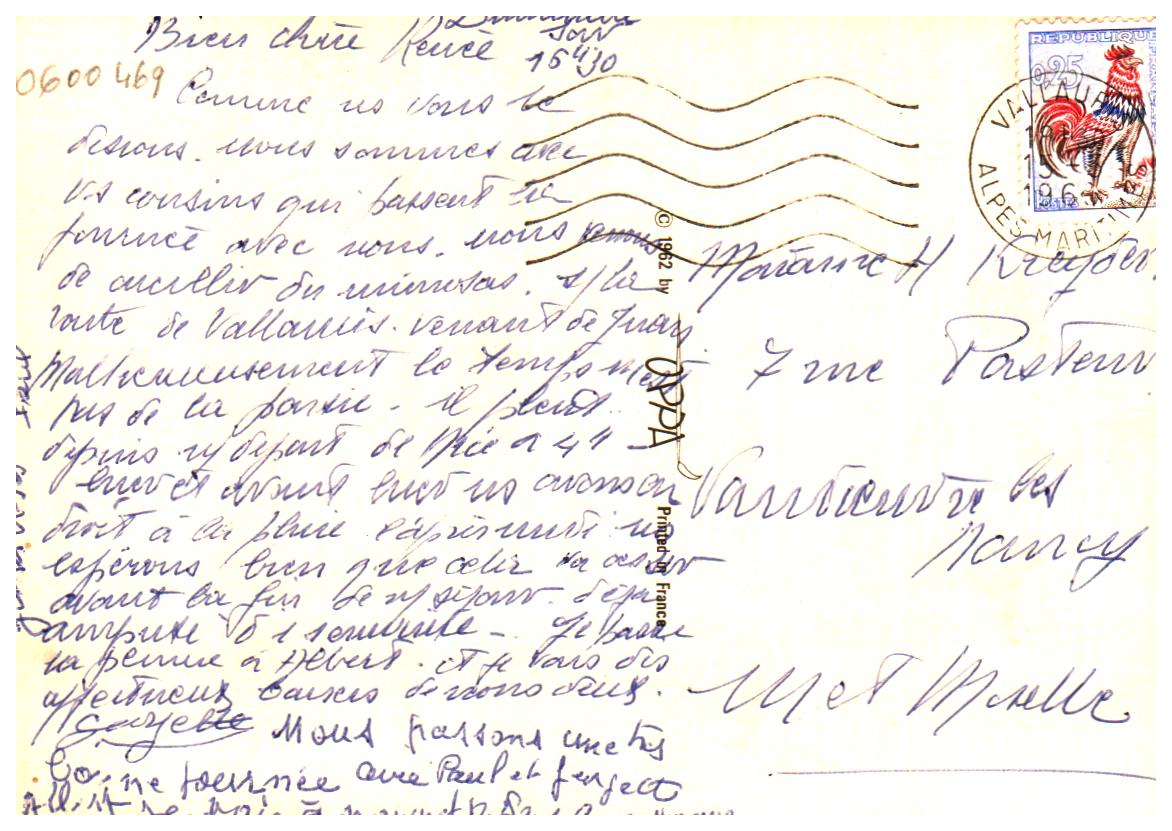 Dimanche
Soir
Bien chère Renée 16 H 30
0600 469
Comme ns vous le
disions. nous sommes avec
vs cousins qui passent la
journée avec nous. nous venons
de cueillir du mimosas. s/ la
route de Vallauris. venant de Juan
Malheureusement le temps n'est
pas de la partie. il pleut
depuis n/ départ de Nice à 4 H -
hier et avant hier ns avons eu
droit à la pluie l'après midi ns
espérons bien que cela va cesser
avant la fin de n/ séjour. déjà
amputé d'1 semaine - Je passe
la plume à Albert. et je vous dis
affectueux baisers de nous deux.
Georgette Nous passons une très
bonne journée avec Paul et Georgette
REPUBLIQUE FRANÇAISE
0,25
VALLAURIS
15
196
ALPES MARITIMES
Madame H Kreyder
7 rue Pasteur
Vandœuvre les
Nancy
M et Moselle
© 1962 by
OPPA
Printed in France